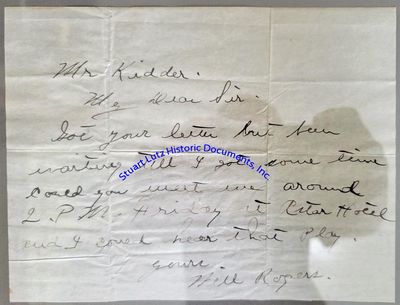 Mr Kidder.
My Dear Sir.
Got your letter but been
till I got some time
Coued you meet me around
2. P.M. Friday at Astor Hotel
and I coued hear that Play.
yours
Will Rogers.
Stuart Lutz Historic Documents, Inc.